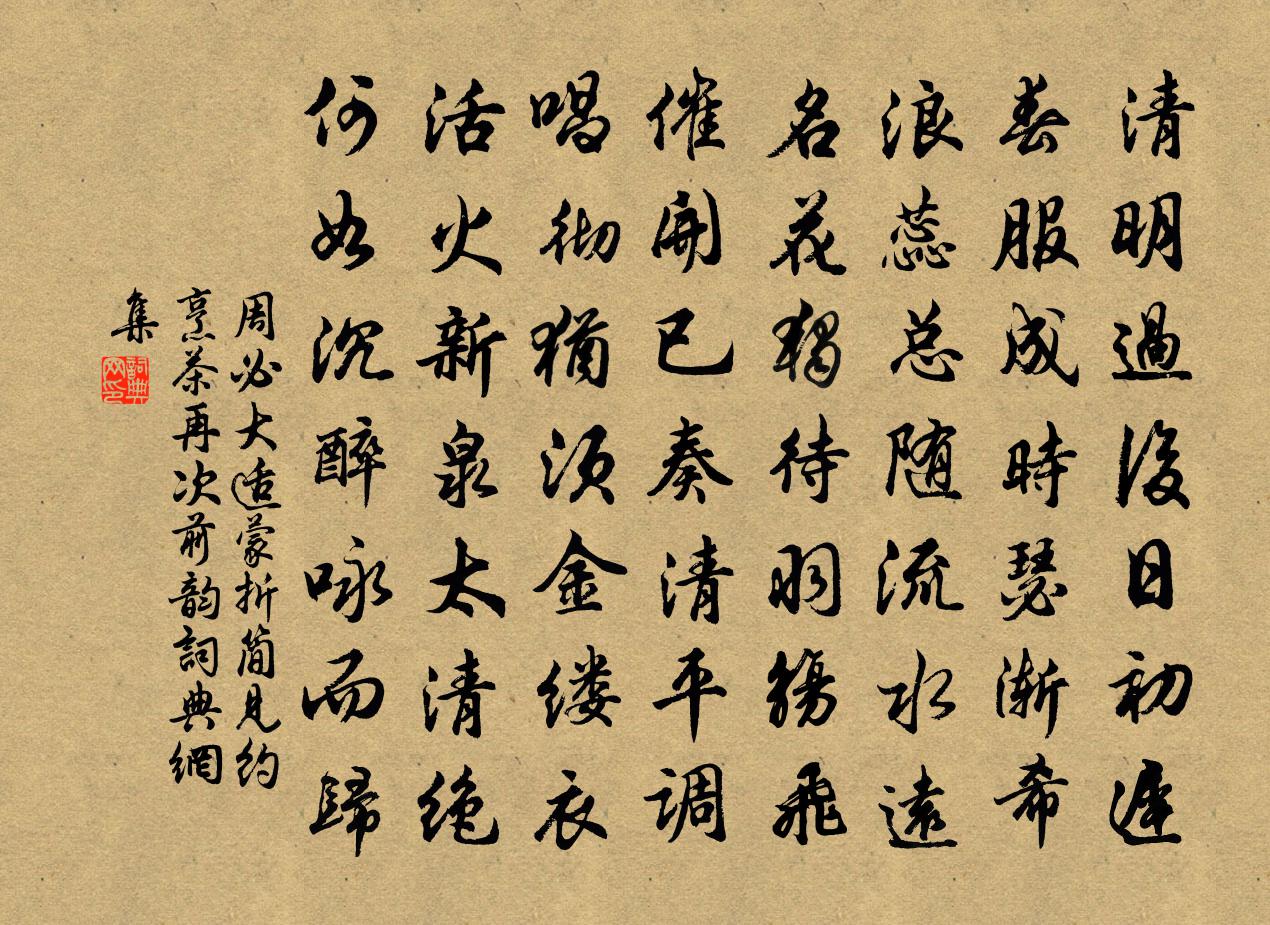 清明過後日初遲
春服成時瑟漸希
浪蕊总随流水遠
名花獨待羽觴飛
催開已奏清平调
唱彻猶须金缕衣
活火新泉太清绝
何如沉醉咏而歸
周必大适蒙折简见约
烹茶再次前韵詞典網
集
詞典
网印